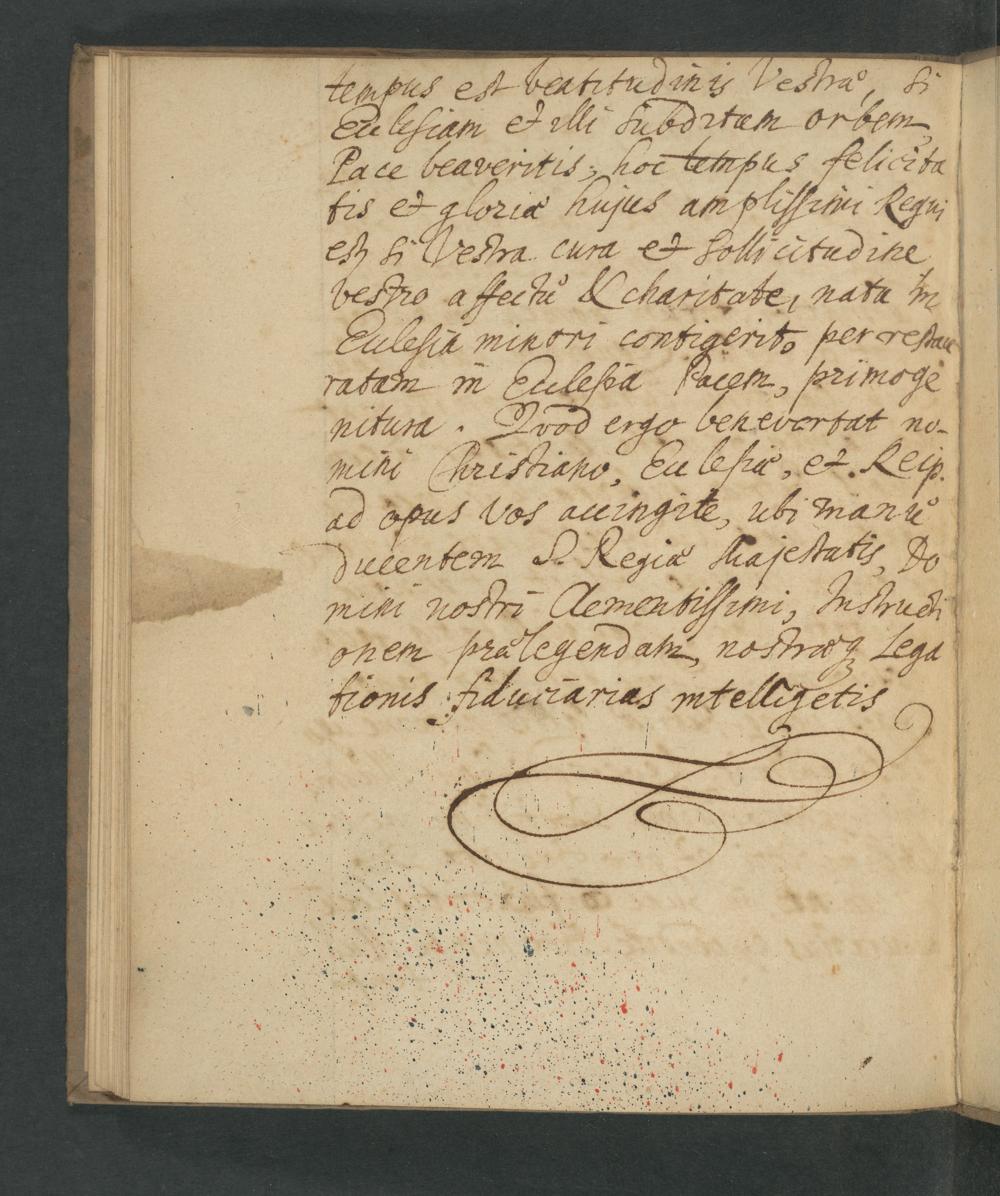 tempus est beatitudinis Vestræ, Si
Ecclesiam et illi Subditam orbem
Pace beaveritis; hoc tempus felicita
tis et gloriæ hujus amplissimi Regni
est si Vestra cura et Sollicitudine
vestro affectu & charitate, nata in
Ecclesia minori contigerit, per restau
ratam in Ecclesia Pacem, primoge
nitura. Quod ergo benevertat no-
mini Christiano, Ecclesiæ, et Reip.
ad opus Vos accingite, ubi manu
ducentem S. Regiæ Majestatis, Do
mini nostri Clementissimi, Instructi
onem prælegendam, nostræq Lega
tionis fiduciarias intelligetis